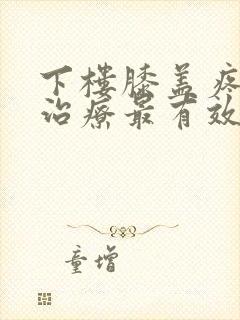 下楼膝盖疼
治疗最有效
童增